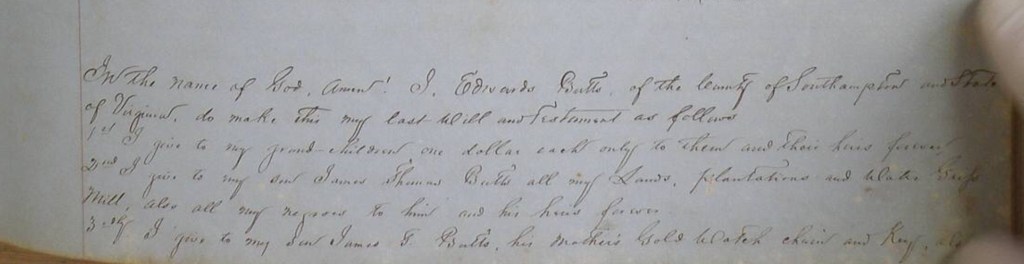 In the name of God, Amen! I, Edwards Butts, of the County of Southampton and State
of Virginia, do make this my last Will and Testament as follows
1st I give to my grand-children one dollar each only to them and their heirs forever
2nd I give to my son James Thomas Butts all my Lands, plantations and Water Grist
Mill, also all my negroes to him and his heirs forever
3rdly I give to my Son James T. Butts, his mother's Gold Watch chain and Key, also